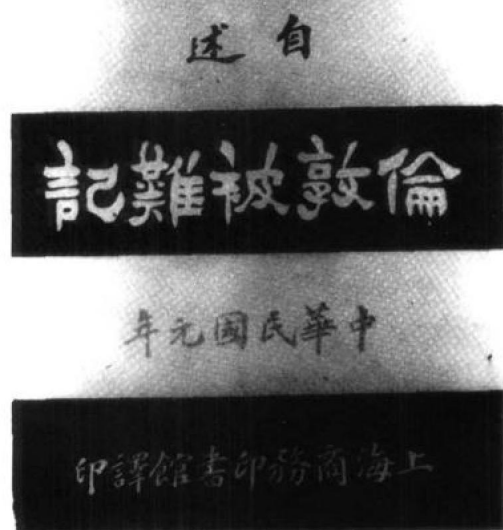 自述
倫敦被難記
中華民國元年
上海商務印書館譯印